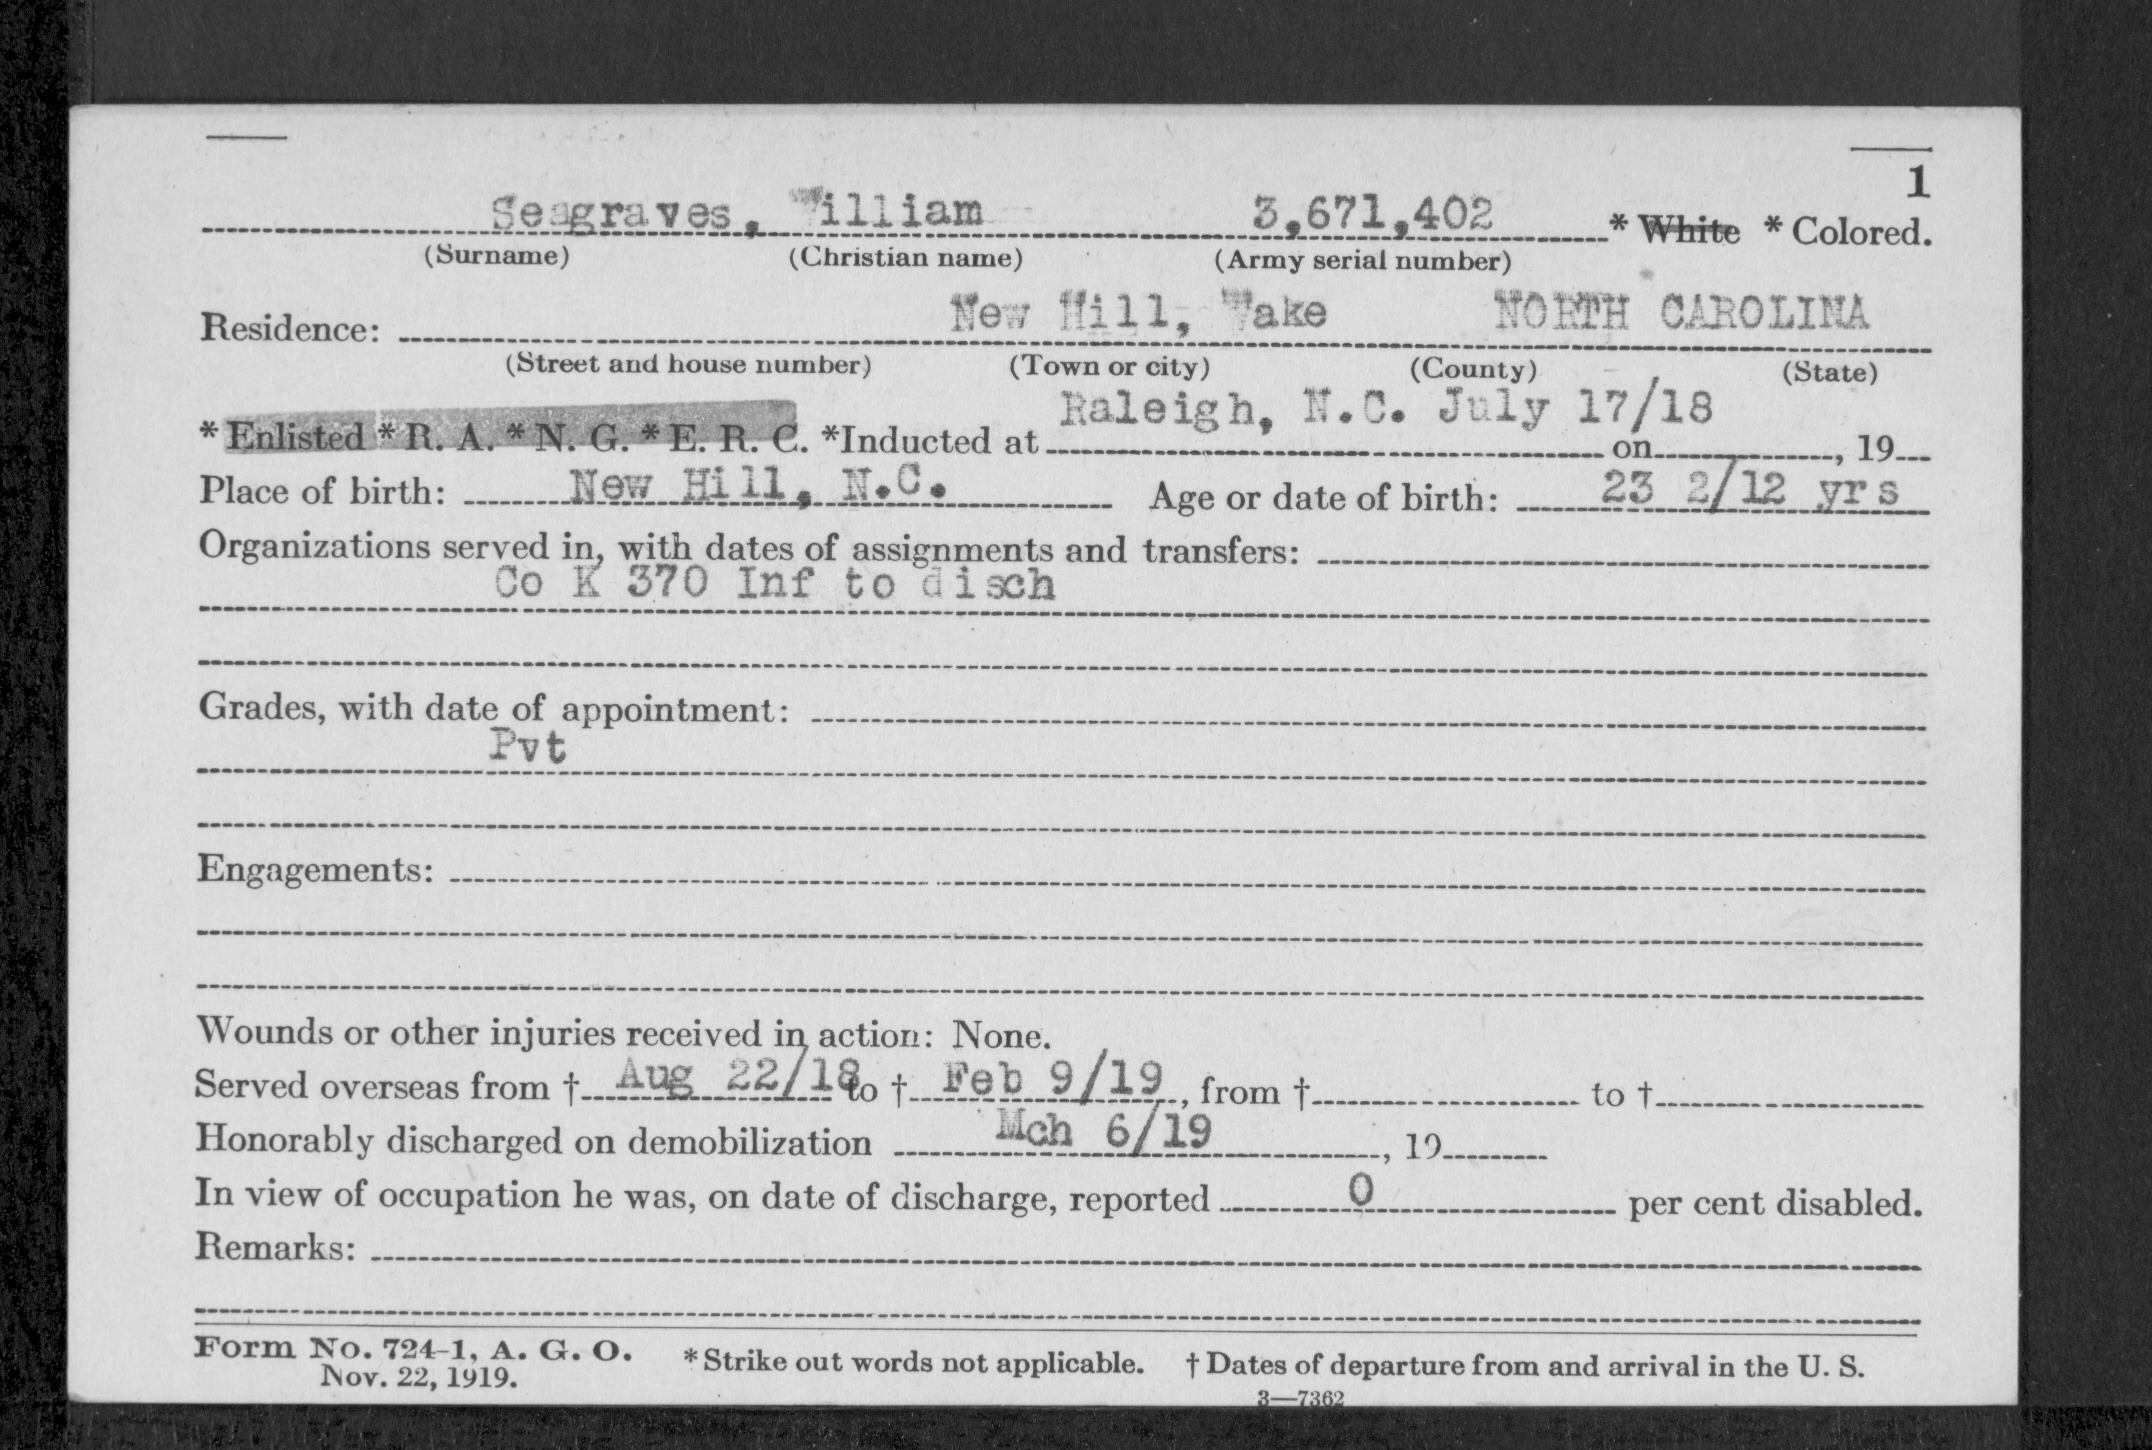 1
Seagraves, William 3,671,402 * White * Colored.
(Surname) (Christian name) (Army serial number)
New Hill, Wake NORTH CAROLINA
Residence:
(Street and house number) (Town or city) (County) (State)
Raleigh, N.C. July 17/18
* Enlisted * R. A. * N. G. * E. R. C. *Inducted at on , 19
Place of birth: New Hill, N.C. Age or date of birth: 23 2/12 yrs
Organizations served in, with dates of assignments and transfers:
Co K 370 Inf to disch
Grades, with date of appointment:
Pvt
Engagements:
Wounds or other injuries received in action: None.
Served overseas from † Aug 22/18 to † Feb 9/19, from † to †
Honorably discharged on demobilization Mch 6/19, 19
In view of occupation he was, on date of discharge, reported 0 per cent disabled.
Remarks:
Form No. 724-1, A. G. O. * Strike out words not applicable. † Dates of departure from and arrival in the U. S.
Nov. 22, 1919.
3—7362